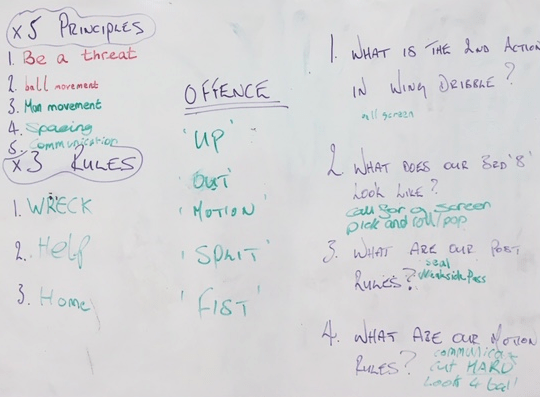 x5 PRINCIPLES
1. Be a threat
2. ball movement
3. Man movement
4. Spacing
5. Communication
x3 RULES
1. WRECK
2. Help
3. Home
OFFENCE
'UP'
'OUT'
'MOTION'
'SPLIT'
'FIST'
1. WHAT IS THE 2ND ACTION
IN WING DRIBBLE?
screen
2 WHAT DOES OUR 3RD '8'
LOOK LIKE?
call for a screen
pick and roll/pop
3. WHAT ARE OUR POST
RULES?
seal
Weakside Pass
4. WHAT ARE OUR MOTION
RULES?
communicate
cut HARD
Look 4 ball